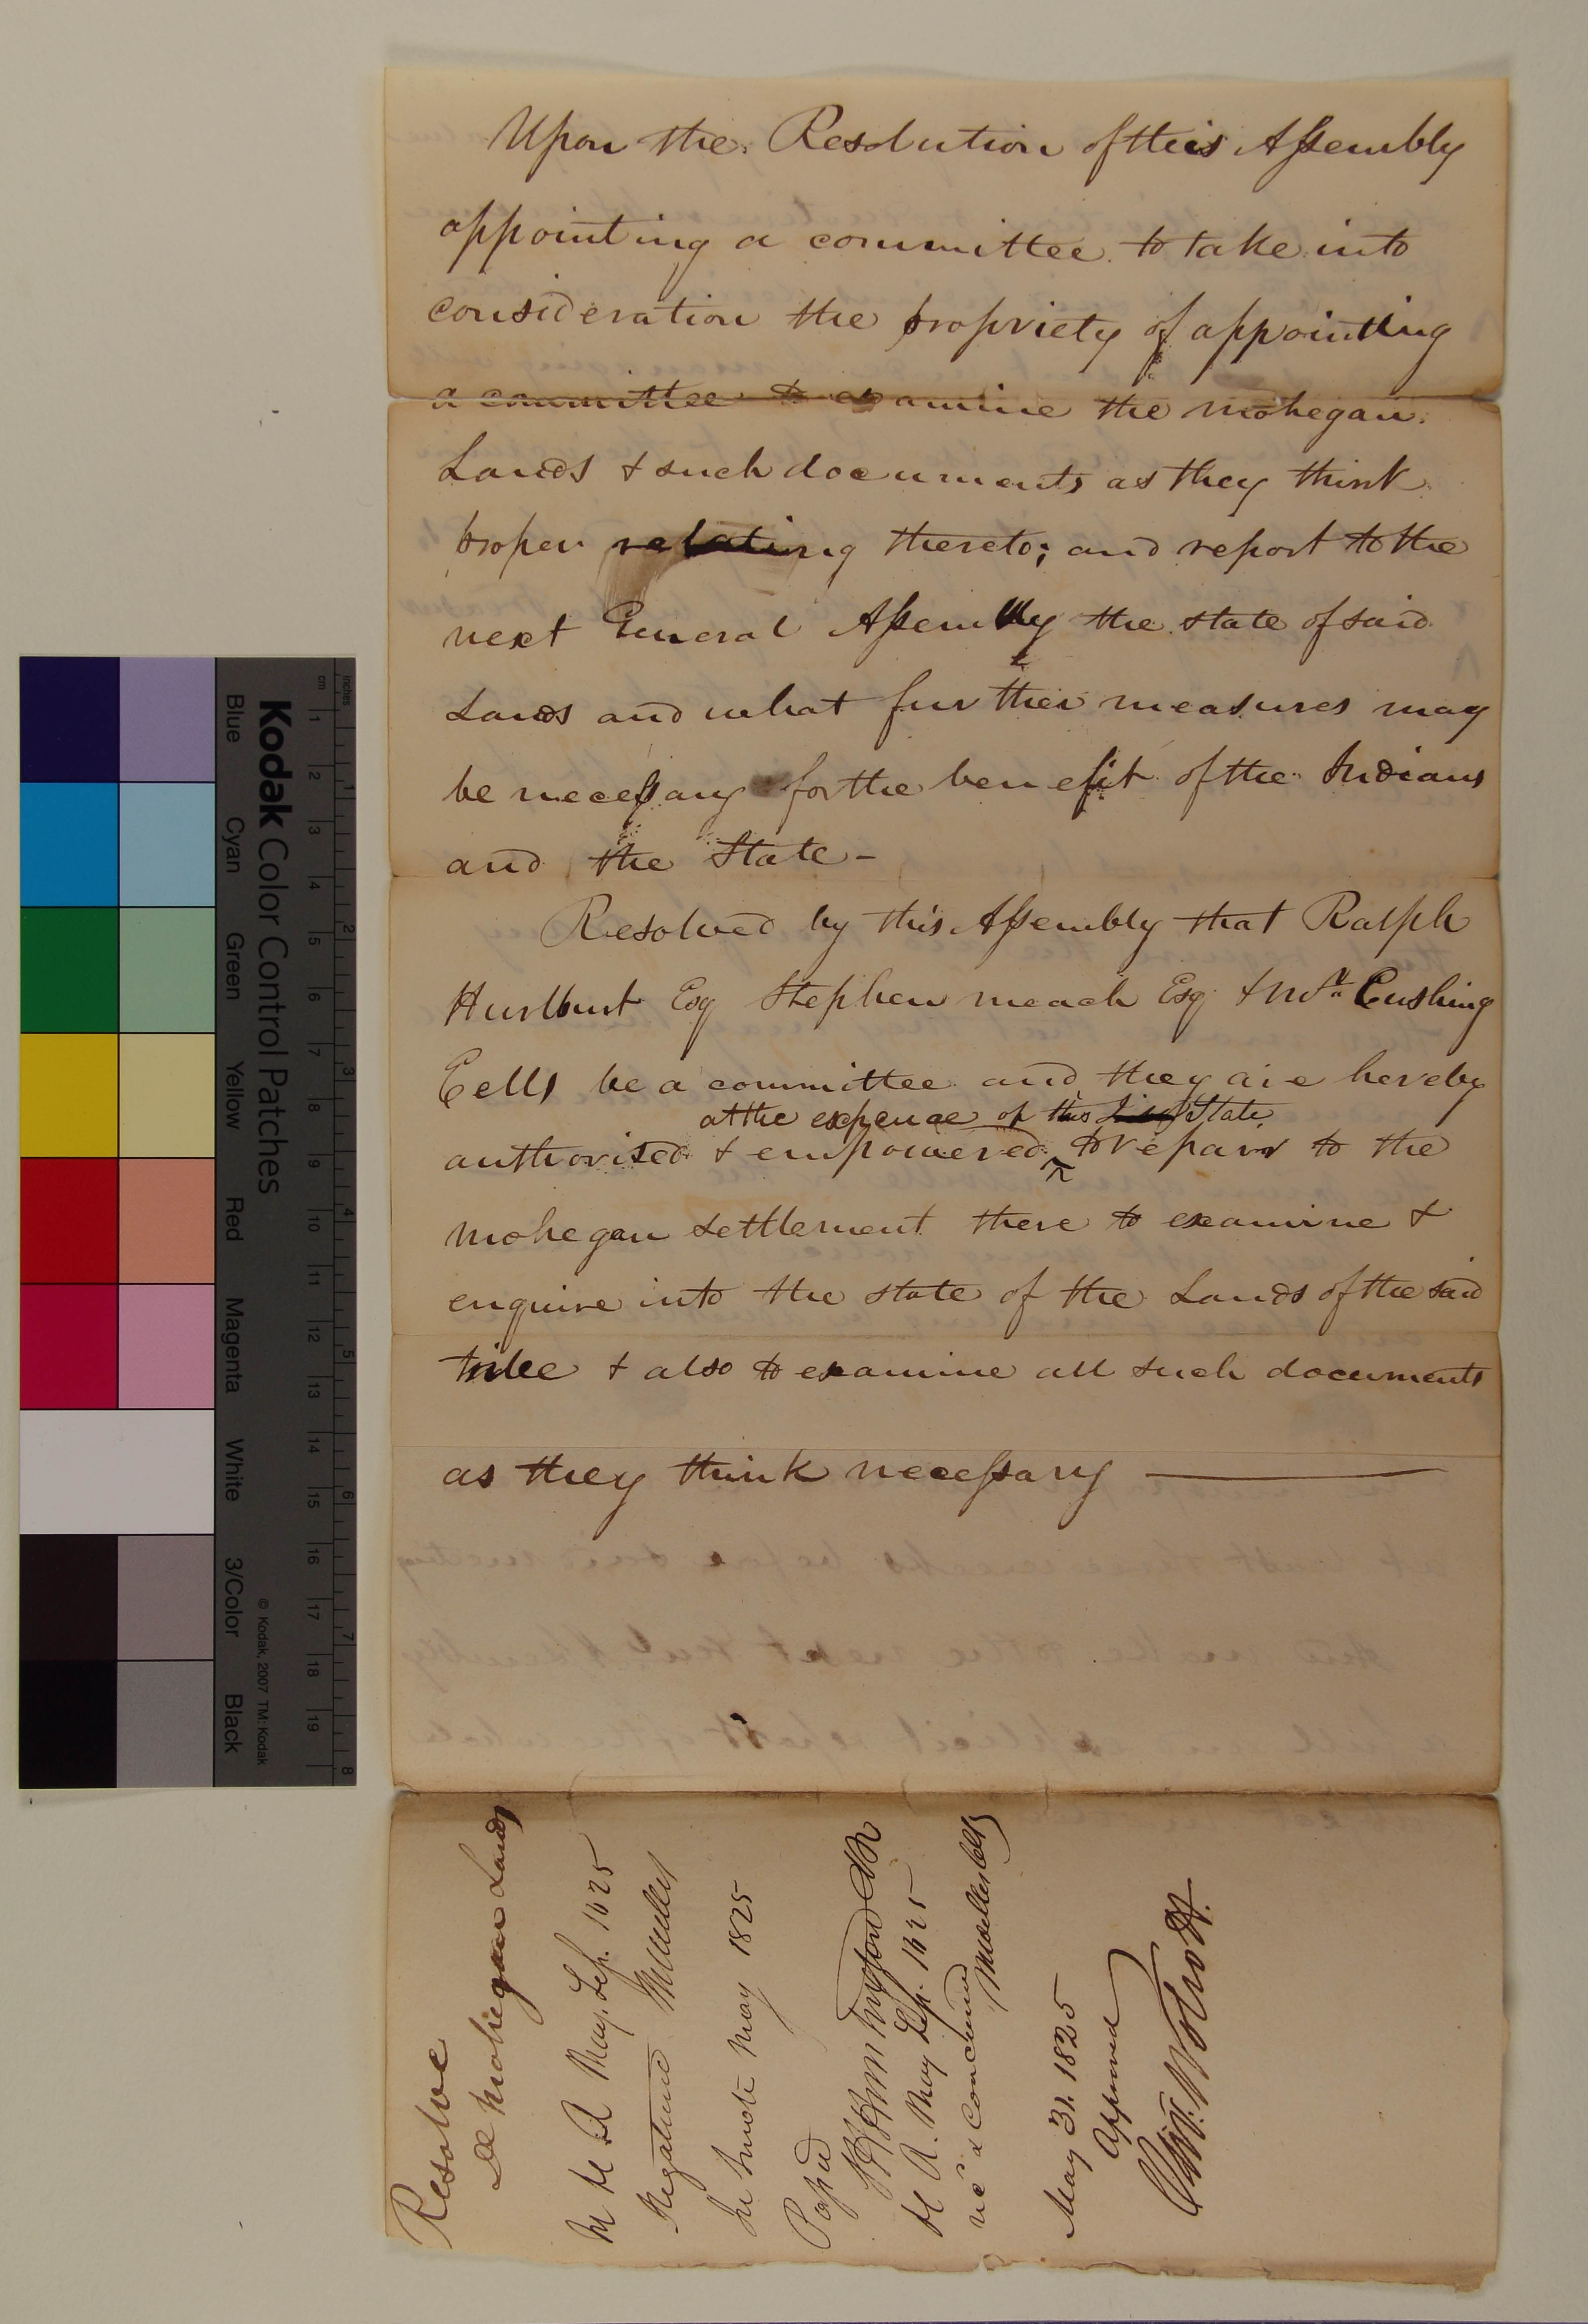 Upon the Resolution of this Assembly
appointing a committee to take into
consideration the propriety of appointing
a committee to examine the mohegan
Lands & such documents as they think
proper relating thereto; and report to the
next General Assembly the state of said
Lands and what further measures may
be necessary for the benefit of the Indians
and the State -
Resolved by this Assembly that Ralph
Hurlbut Esq Stephen meach Esq & Mr. Cushing
Eells be a committee and they are hereby
at the expence of this State
authorised & empowered ^ to repair to the
mohegan settlement there to examine &
enquire into the state of the Lands of the said
tribe & also to examine all such documents
as they think necessary
Resolve
De Mohegan Lands
In H R May Sess. 1825
Negatived
In Senate May 1825
Passed
H R. May Sess. 1825
rec'd & concurred
May 31. 1825
Approved
Oliv. Wolcott.
Kodak Color Control Patches
Blue Cyan Green Yellow Red Magenta White 3/Color Black
© Kodak, 2007 TM: Kodak
inches 1 2 3 4 5 6 7 8
cm 1 2 3 4 5 6 7 8 9 10 11 12 13 14 15 16 17 18 19